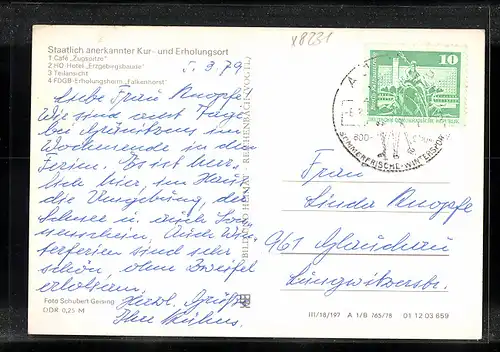 x8231
Staatlich anerkannter Kur- und Erholungsort
1 Café „Zugspitze“
2 HO-Hotel „Erzgebirgsbaude“
3 Teilansicht
4 FDGB-Erholungsheim „Falkenhorst“
5. 3. 79
Liebe Frau Knopfe
Wir sind acht Tage
bei
im
Wochenende in den
Ferien. Es ist herr-
lich hier, im Haus
die Umgebung, der
Schnee u. auch Son-
nenschein. Auch Win-
terferien sind sehr
schön, ohne Zweifel
erholsam.
Herzl. Grüße
Ihre Kühns
Foto Schubert Geising
DDR 0,25 M
BILD UND HEIMAT REICHENBACH (VOGTL)
10
800-
SOMMERFRISCHE-WINTERSPORT
Frau
Linda Knopfe
961 Glauchau
Lungwitzerstr.
III/18/197 A 1/B 765/78 01 12 03 659